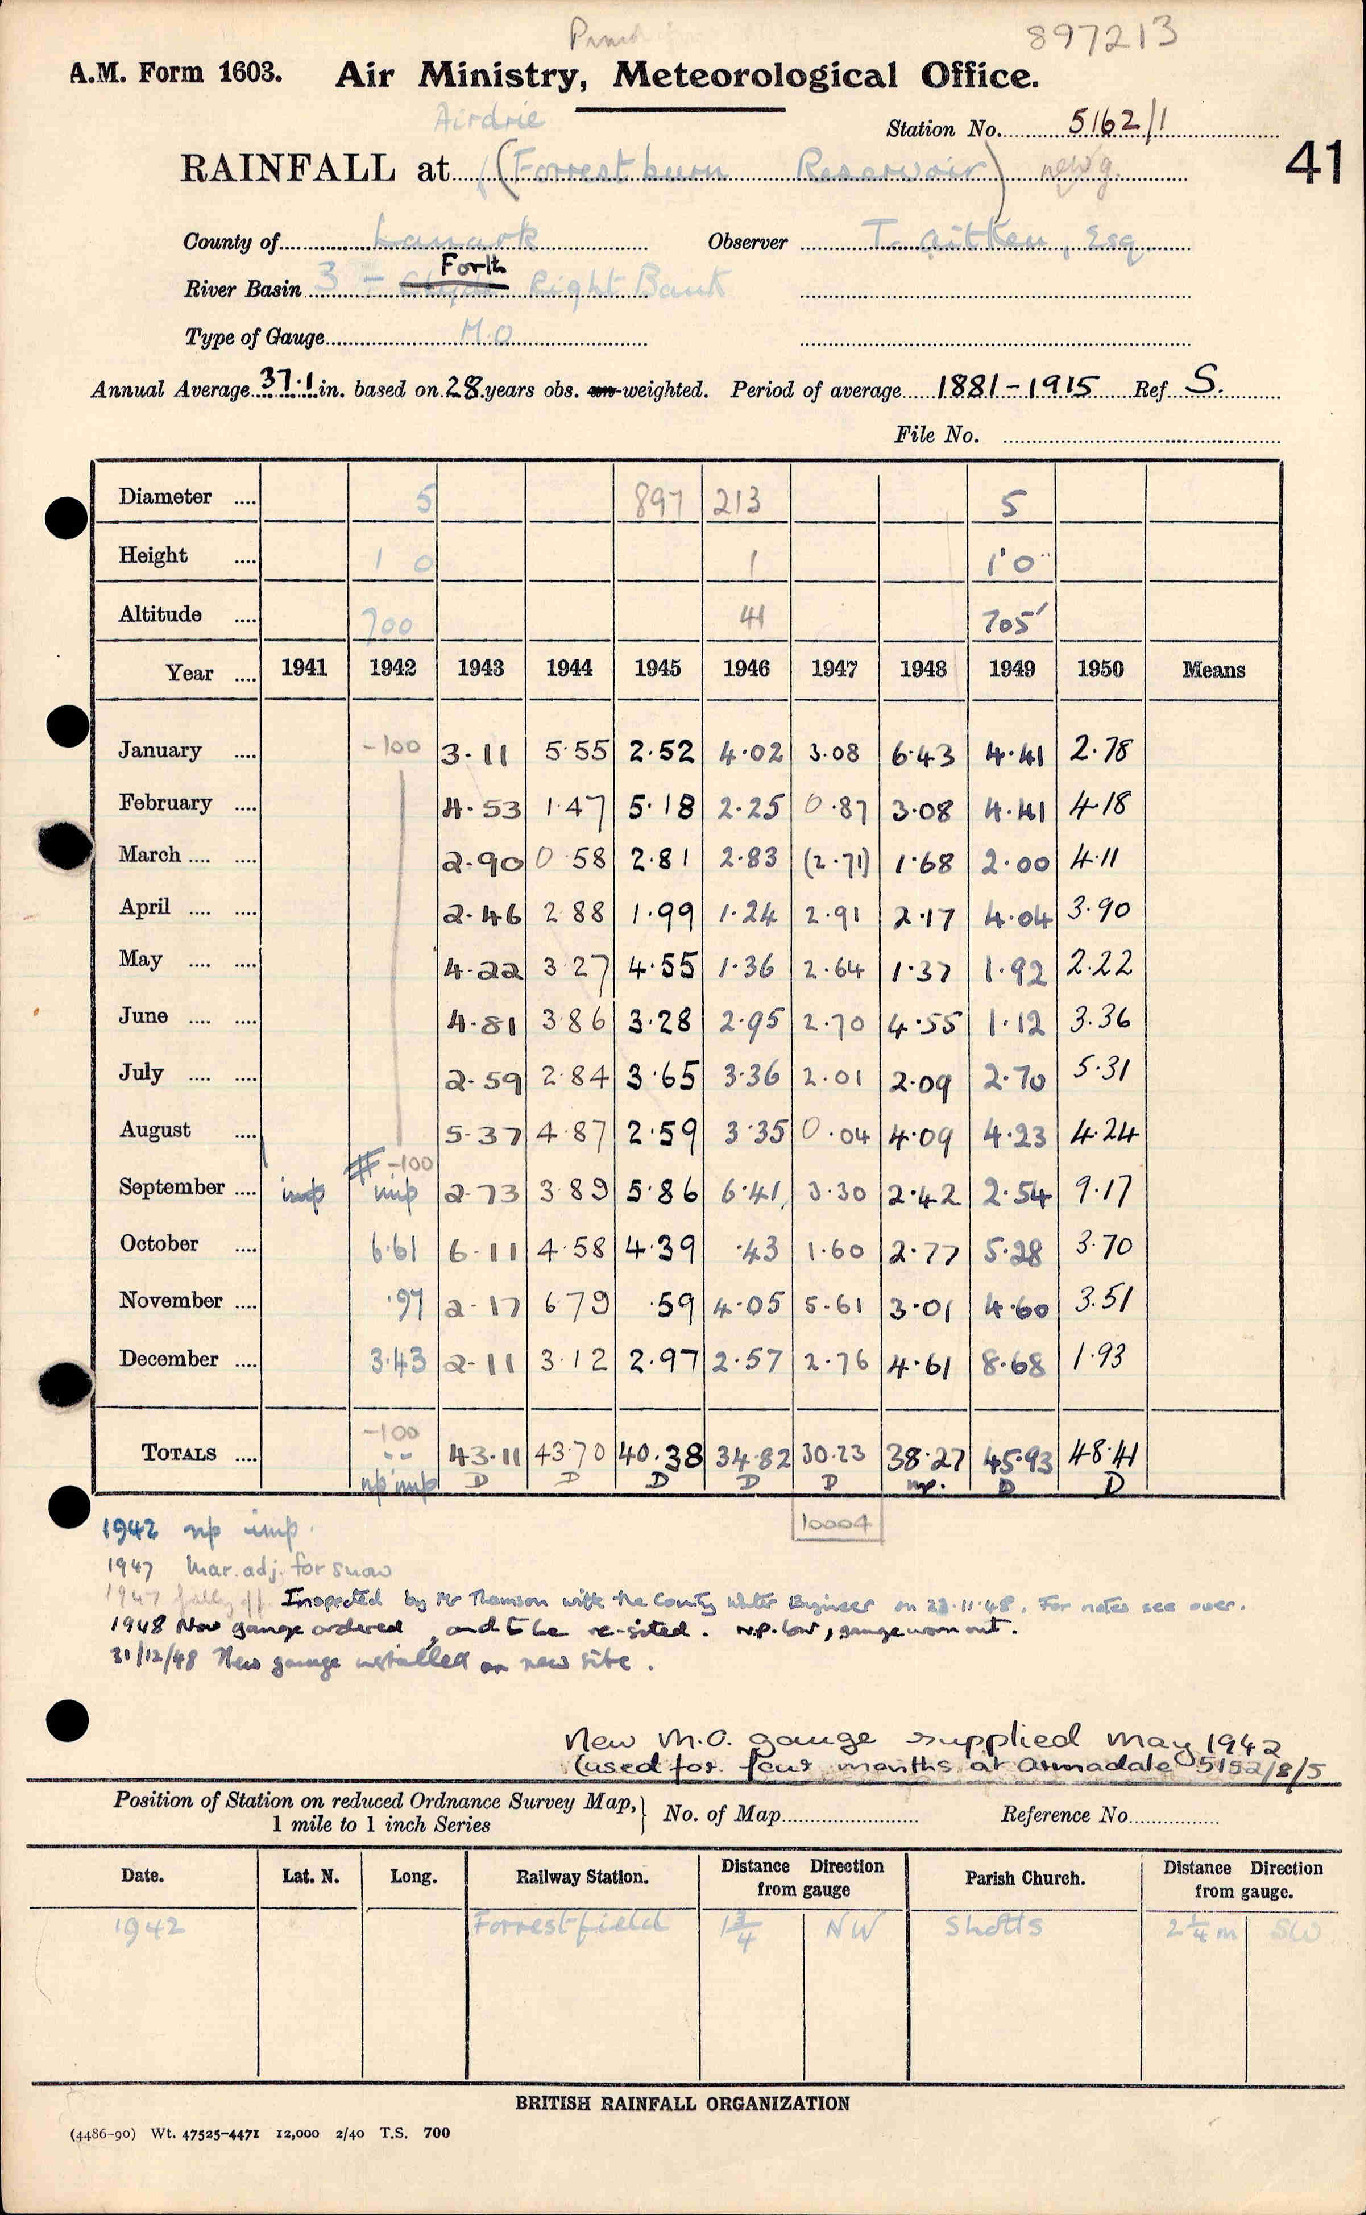 897213
A.M. Form 1603. Air Ministry, Meteorological Office.
Airdrie
Station No. 5162/1
RAINFALL at (Forrestburn Reservoir) new g. 41
County of Lanark Observer T. Aitken, Esq.
Forth
River Basin 3 = Clyde Right Bank
Type of Gauge M.O
Annual Average 37.1 in. based on 28 years obs. un-weighted. Period of average 1881-1915 Ref S.
File No.
Diameter .... 5 897 213 5
Height .... 1 0 1 1'0"
Altitude .... 700 41 705'
Year .... 1941 1942 1943 1944 1945 1946 1947 1948 1949 1950 Means
January .... -100 3.11 5.55 2.52 4.02 3.08 6.43 4.41 2.78
February .... 4.53 1.47 5.18 2.25 0.87 3.08 4.41 4.18
March .... .... 2.90 0.58 2.81 2.83 (2.71) 1.68 2.00 4.11
April .... .... 2.46 2.88 1.99 1.24 2.91 2.17 4.04 3.90
May .... .... 4.22 3.27 4.55 1.36 2.64 1.37 1.92 2.22
June .... .... 4.81 3.86 3.28 2.95 2.70 4.55 1.12 3.36
July .... .... 2.59 2.84 3.65 3.36 2.01 2.09 2.70 5.31
August .... 5.37 4.87 2.59 3.35 0.04 4.09 4.23 4.24
-100
September .... imp imp 2.73 3.89 5.86 6.41 3.30 2.42 2.54 9.17
October .... 6.61 6.11 4.58 4.39 .43 1.60 2.77 5.28 3.70
November .... .97 2.17 6.79 .59 4.05 5.61 3.01 4.60 3.51
December .... 3.43 2.11 3.12 2.97 2.57 2.76 4.61 8.68 1.93
-100
TOTALS .... -- 43.11 43.70 40.38 34.82 30.23 38.27 45.93 48.41
np imp D D D D D np. D D
1942 np imp. 10004
1947 Mar. adj. for snow
1947 falling off Inspected by Mr Thomson with the County Water Engineer on 23.11.48. For notes see over.
1948 New gauge ordered, and to be re-sited. n.p. low, gauge worn out.
31/12/48 New gauge installed on new site.
New M.O. gauge supplied May 1942
(used for four months at Armadale 5152/8/5
Position of Station on reduced Ordnance Survey Map, 1 mile to 1 inch Series } No. of Map Reference No.
Date. Lat. N. Long. Railway Station. Distance Direction from gauge Parish Church. Distance Direction from gauge.
1942 Forrestfield 1 3/4 NW Shotts 2 1/4 m SW
BRITISH RAINFALL ORGANIZATION
(4486-90) Wt. 47525-4471 12,000 2/40 T.S. 700